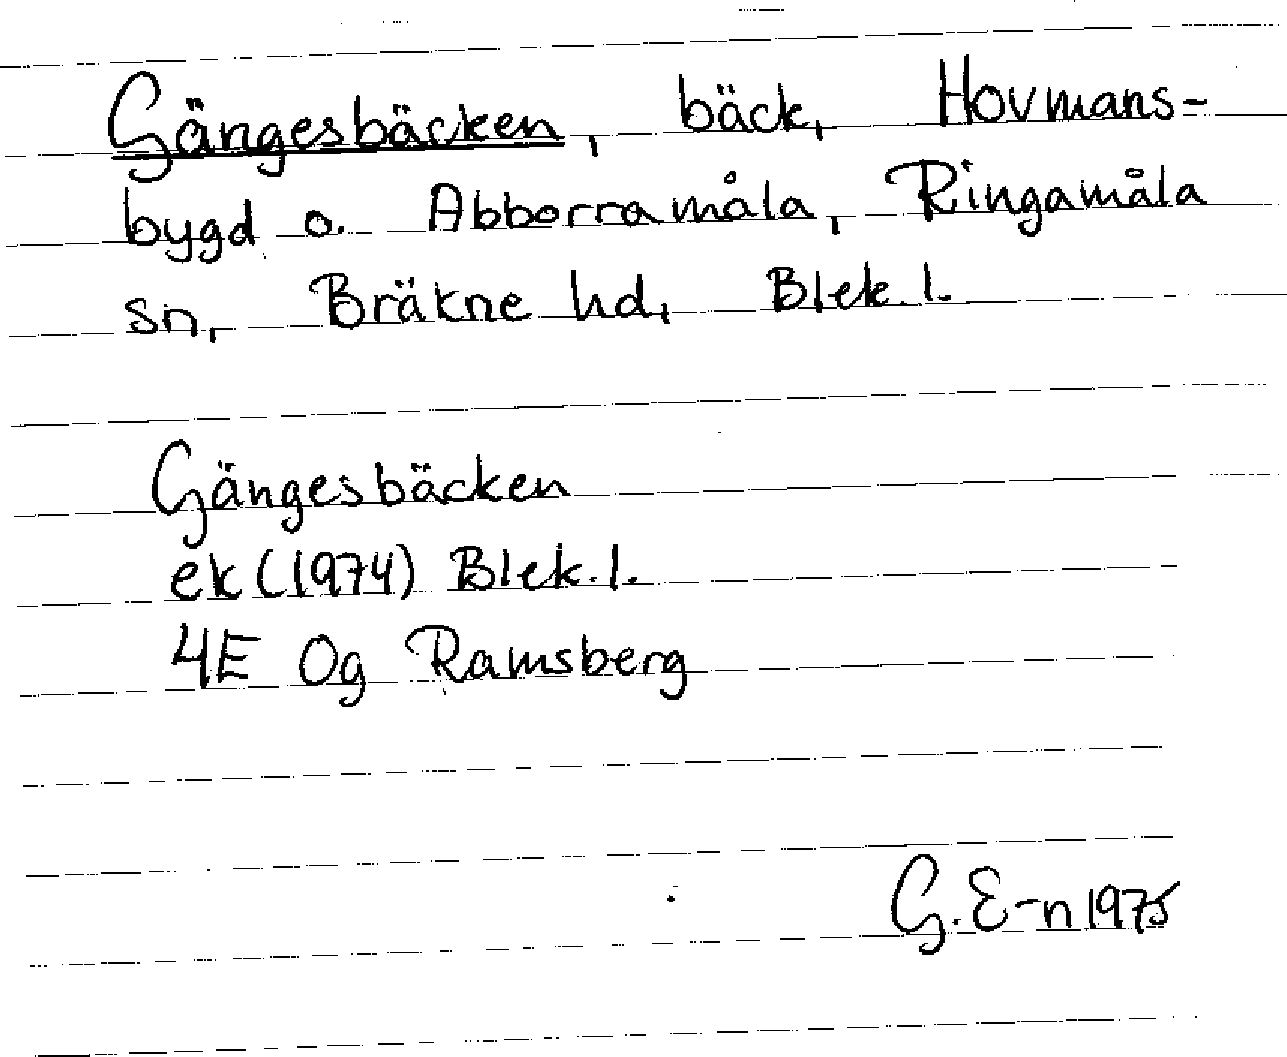 Gängesbäcken, bäck, Hovmans-
bygd o. Abborramåla, Ringamåla
sn, Bräkne hd, Blek. l.
Gängesbäcken
ek (1974) Blek. l.
4E 0g Ramsberg
G. E-n 1975